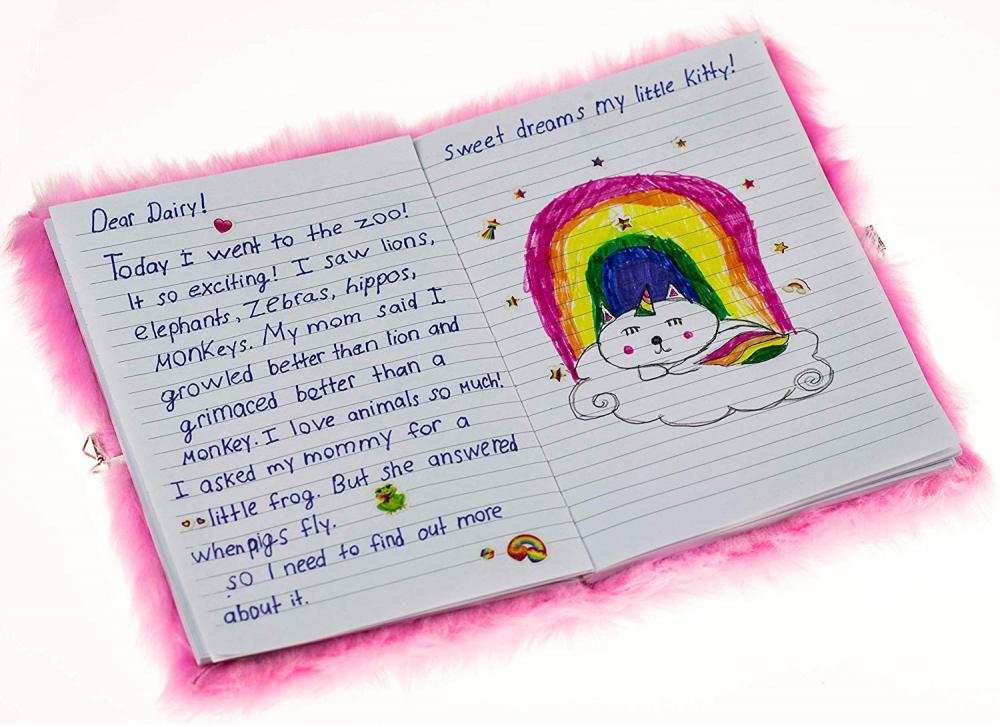 Dear Dairy!
Today I went to the zoo!
It so exciting! I saw lions,
elephants, Zebras, hippos,
MONKeys. My mom said I
growled better than lion and
grimaced better than a
monkey. I love animals so much!
I asked my mommy for a
little frog. But she answered
when pigs fly.
so I need to find out more
about it.
sweet dreams my little Kitty!